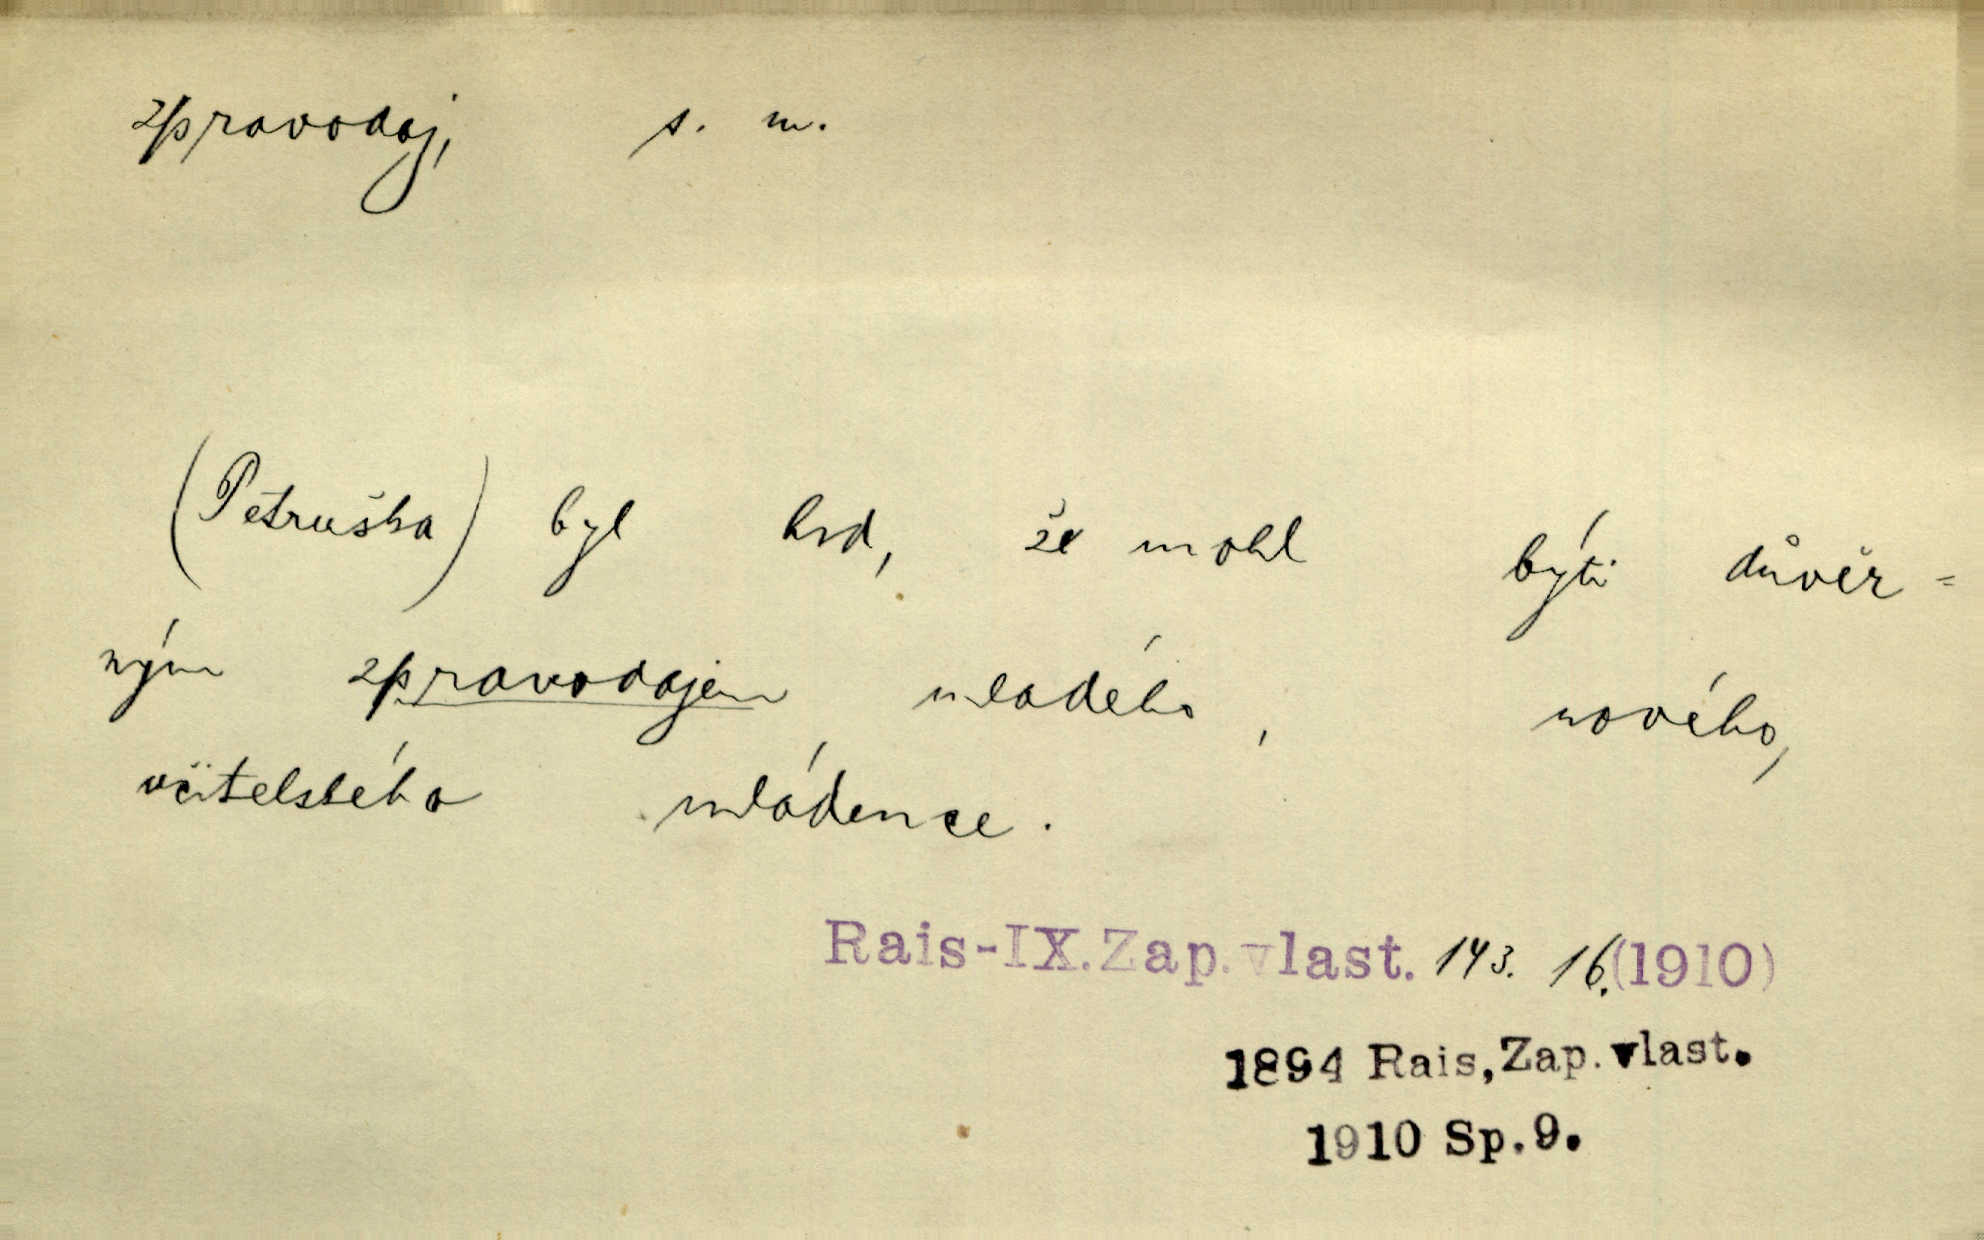 zpravodaj, s. m.
(Petruška) byl hrd, že mohl býti důvěr=
ným zpravodajem mladého, nového,
učitelského mládence.
Rais-IX.Zap.vlast. 143. 16.(1910)
1894 Rais,Zap.vlast.
1910 Sp.9.